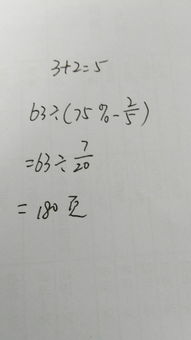 3+2=5
63÷(75%-2/5)
=63÷7/20
=180页